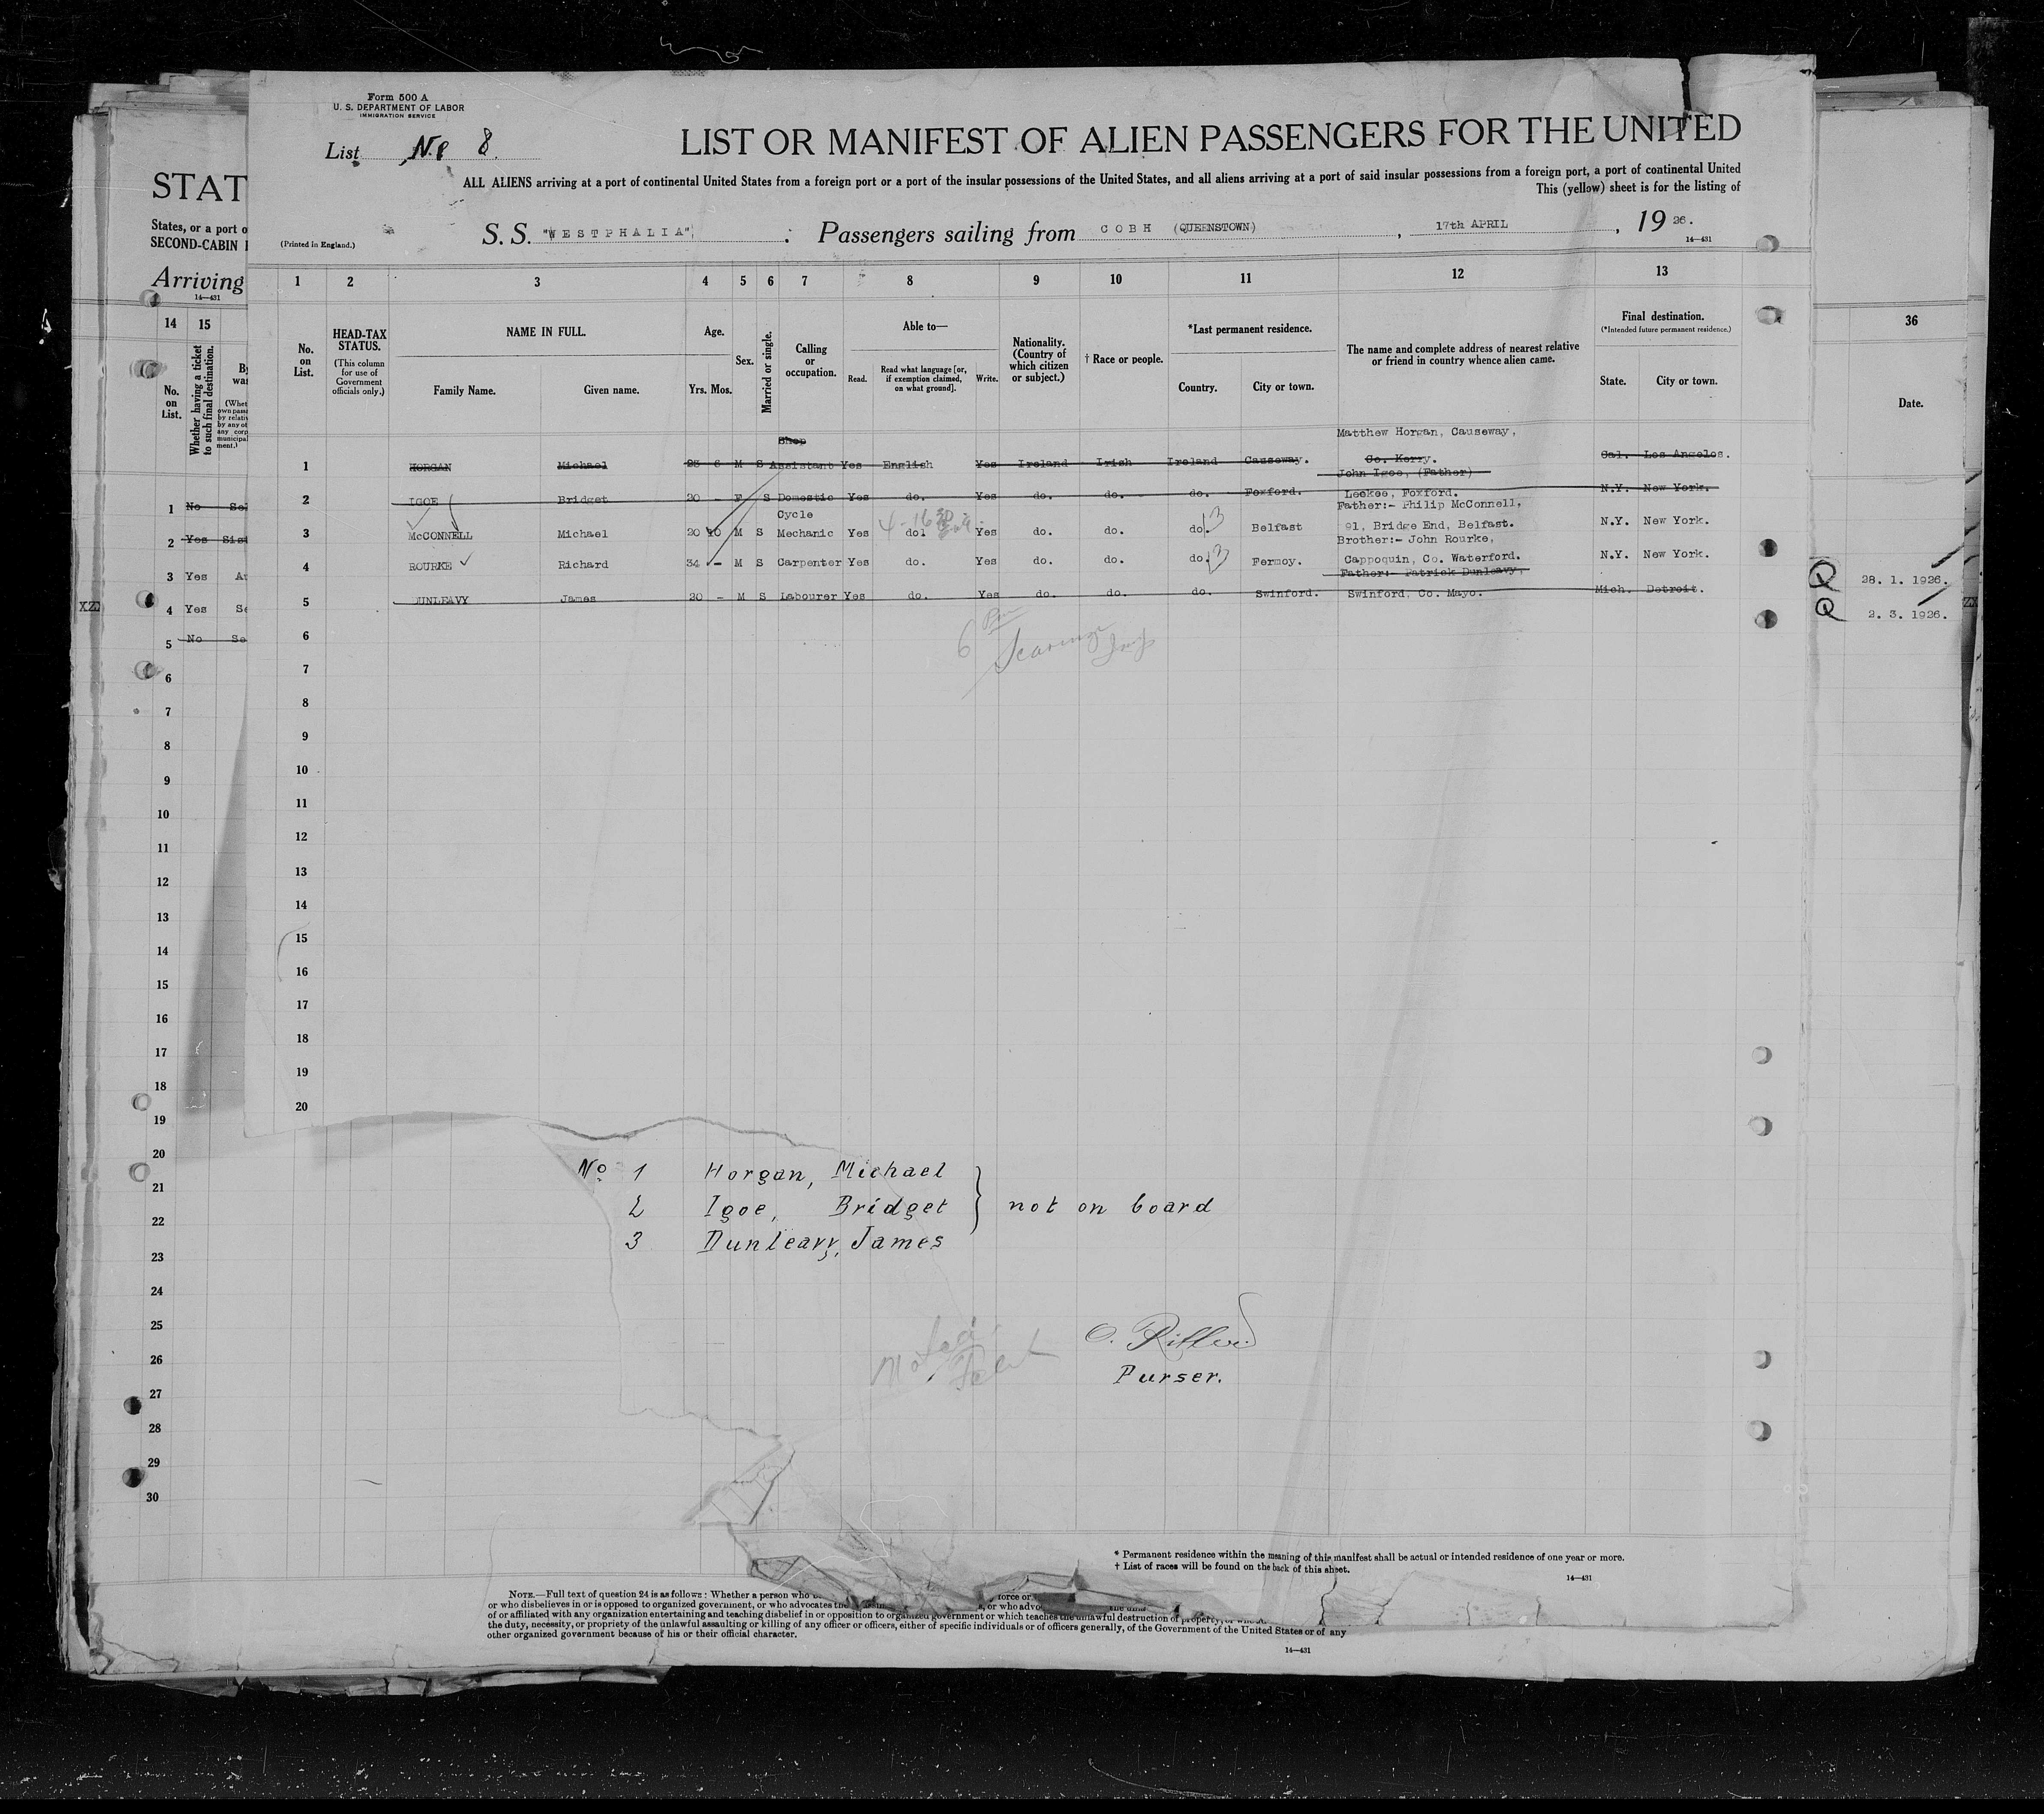 Form 500 A
U. S. DEPARTMENT OF LABOR
IMMIGRATION SERVICE
List No 8.
LIST OR MANIFEST OF ALIEN PASSENGERS FOR THE UNITED
ALL ALIENS arriving at a port of continental United States from a foreign port or a port of the insular possessions of the United States, and all aliens arriving at a port of said insular possessions from a foreign port, a port of continental United
This (yellow) sheet is for the listing of
STAT
States, or a port o
SECOND-CABIN
(Printed in England.)
S. S. "WESTPHALIA" : Passengers sailing from COBH (QUEENSTOWN) , 17th APRIL , 1926.
14—431
Arriving
14—431
1 2 3 4 5 6 7 8 9 10 11 12 13
14 15 36
No. on List.
HEAD-TAX STATUS.
(This column for use of Government officials only.)
NAME IN FULL.
Family Name. Given name.
Age.
Yrs. Mos.
Sex.
Married or single.
Calling or occupation.
Able to—
Read. Read what language [or, if exemption claimed, on what ground]. Write.
Nationality. (Country of which citizen or subject.)
† Race or people.
*Last permanent residence.
Country. City or town.
The name and complete address of nearest relative or friend in country whence alien came.
Final destination.
(*Intended future permanent residence.)
State. City or town.
No. on List.
Whether having a ticket to such final destination.
Date.
Shop Matthew Horgan, Causeway,
1 HORGAN Michael 28 6 M S Assistant Yes English Yes Ireland Irish Ireland Causeway. Co. Kerry. Cal. Los Angelos.
John Igoe, (Father)
2 IGOE Bridget 20 - F S Domestic Yes do. Yes do. do. do. Foxford. Leckee, Foxford. N.Y. New York.
Cycle Father:- Philip McConnell,
3 McCONNELL Michael 20 10 M S Mechanic Yes do. Yes do. do. do. Belfast 91, Bridge End, Belfast. N.Y. New York.
Brother:- John Rourke,
4 ROURKE Richard 34 - M S Carpenter Yes do. Yes do. do. do. Fermoy. Cappoquin, Co. Waterford. N.Y. New York.
Father:- Patrick Dunleavy,
5 DUNLEAVY James 20 - M S Labourer Yes do. Yes do. do. do. Swinford. Swinford, Co. Mayo. Mich. Detroit.
6
7
8
9
10
11
12
13
14
15
16
17
18
19
20
1 No
2 Yes
3 Yes
4 Yes
5 No
6
7
8
9
10
11
12
13
14
15
16
17
18
19
20
21
22
23
24
25
26
27
28
29
30
28. 1. 1926.
2. 3. 1926.
No 1 Horgan, Michael
2 Igoe, Bridget } not on board
3 Dunleavy, James
Purser.
* Permanent residence within the meaning of this manifest shall be actual or intended residence of one year or more.
† List of races will be found on the back of this sheet.
14—431
NOTE.—Full text of question 24 is as follows: Whether a person who force or
or who disbelieves in or is opposed to organized government, or who advocates the
of or affiliated with any organization entertaining and teaching disbelief in or opposition to organized government or which teaches the unlawful destruction of property,
the duty, necessity, or propriety of the unlawful assaulting or killing of any officer or officers, either of specific individuals or of officers generally, of the Government of the United States or of any
other organized government because of his or their official character.
14—431